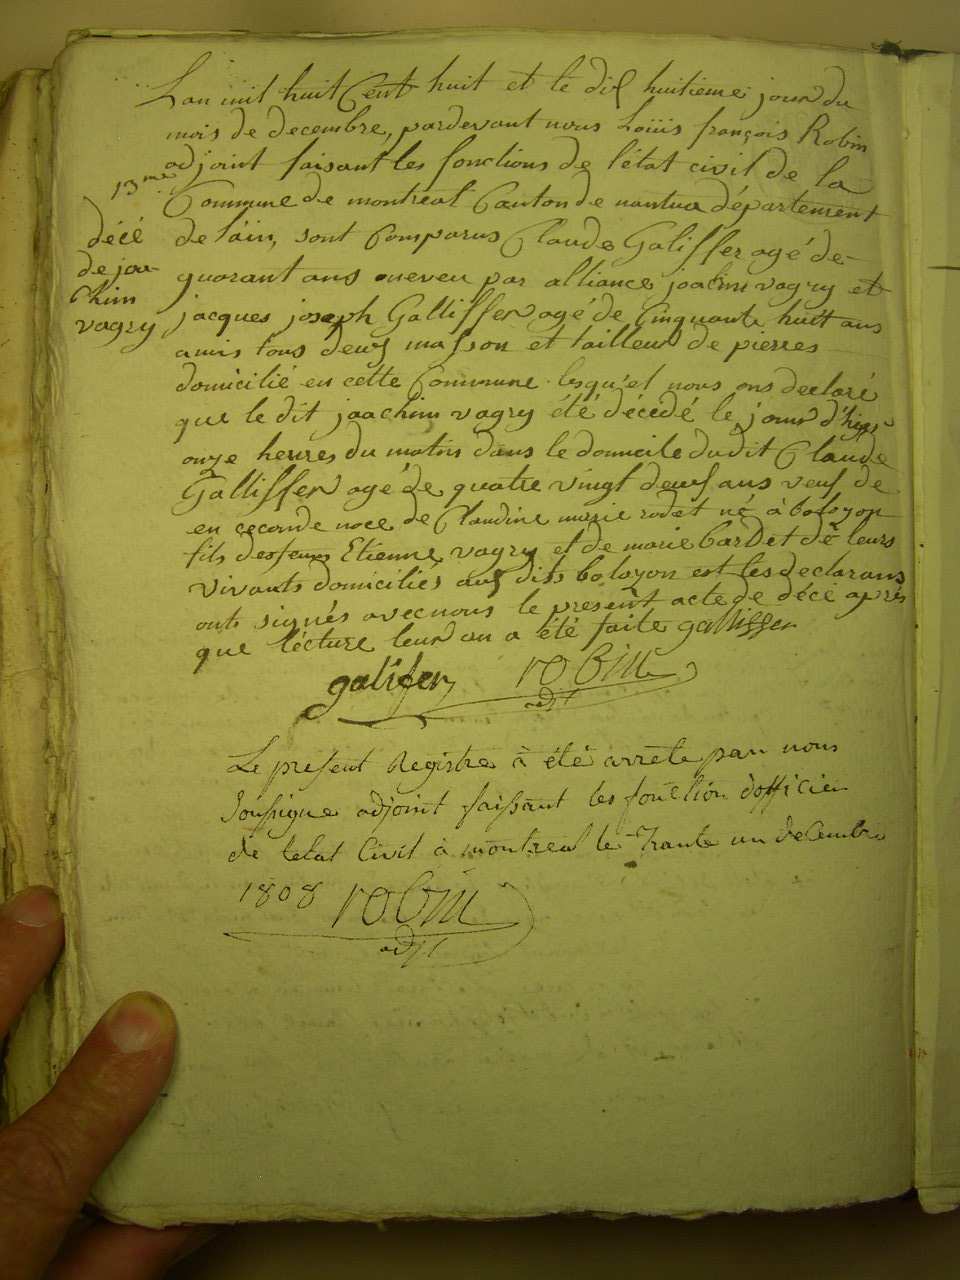 L'an mil huit Cent huit et le dix huitieme jour du
mois de decembre, pardevant nous Loüis françois Robin
adjoint faisant les fonctions de l'état civil de la
Commune de montreal Canton de nantua département
de l'ain, sont Comparus Claude Galiffer agé de
quarant ans neveu par alliance joachim vagry et
jacques joseph Galliffer agé de Cinquante huit ans
amis tous deux masson et tailleur de pierres
domicilié en cette Commune lesqu'el nous ons declaré
que le dit joachim vagry été décédé le jour d'hyer
onze heures du matin dans le domicile dudit Claude
Galliffer agé de quatre vingt deux ans veuf de
en ceconde noce de Claudine marie rodet né à boloyon
fils de Etienne vagry et de marie bardet de leurs
vivants domiciliés aux dits boloyon et les declarans
onts signés avec nous le present acte de décé après
que lecture leur an a été faite galliffer
galifer robin
adjt
13me
décé
de joa-
chim
vagry
Le present Registre à été arrêté par nous
Soussigne adjoint faissant les fonction dofficier
de letat Civil à montreal le Trante un decembre
1808 robin
adjt